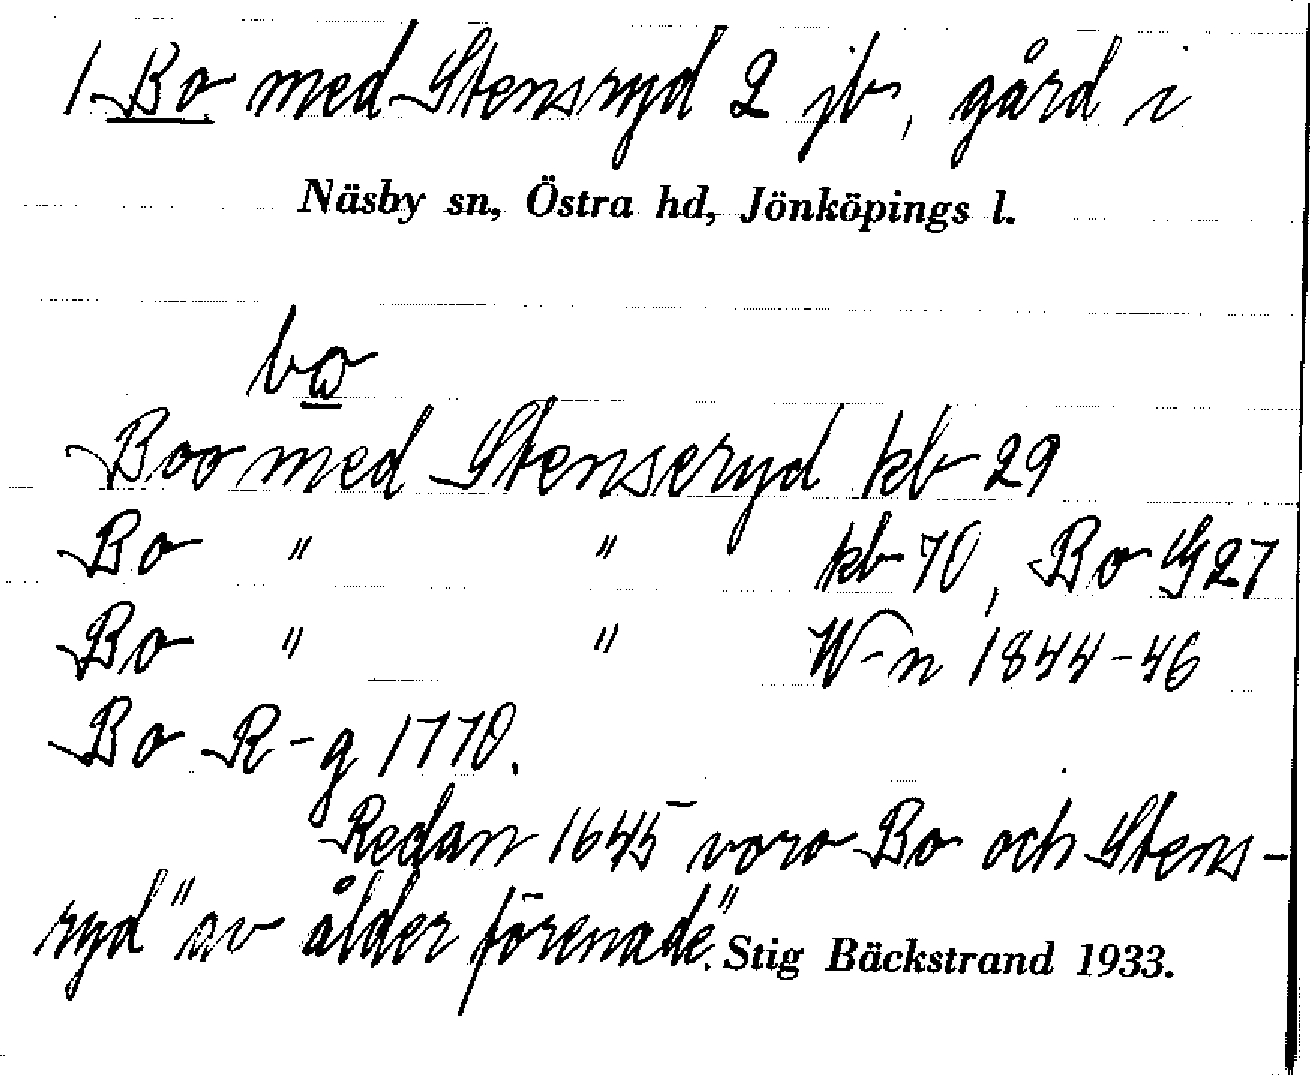 1 Bo med Stensryd 2 jb, gård i
Näsby sn, Östra hd, Jönköpings l.
bo
Boo med Stenseryd kb 29
Bo " " kb 70, Bo G 27
Bo " " W-n 1844-46
Bo R-g 1770.
Redan 1645 voro Bo och Stens-
ryd "av ålder förenade".
Stig Bäckstrand 1933.